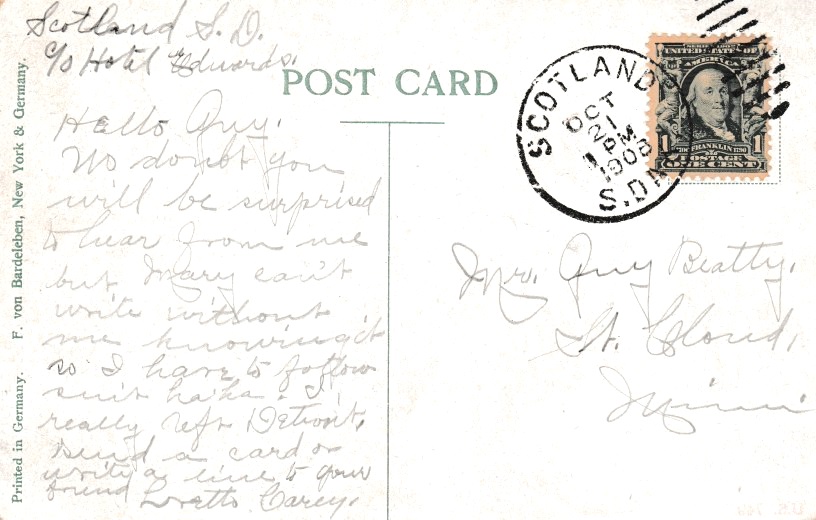 Scotland S. D.
c/o Hotel Eduards.
POST CARD
Hello Guy.
No doubt you
will be surprised
to hear from me
but Mary can't
write without
me knowing it
so I have to follow
suit ha ha. I
really left Detroit.
send a card or
write a line to your
friend Loretto Carey.
Printed in Germany. F. von Bardeleben, New York & Germany.
SCOTLAND
OCT
21
PM
1908
S.DAK
SERIES 1902
UNITED STATES OF
AMERICA
1 FRANKLIN 1790 1
POSTAGE
ONE CENT
Mr. Guy Beatty.
St. Cloud,
Minn